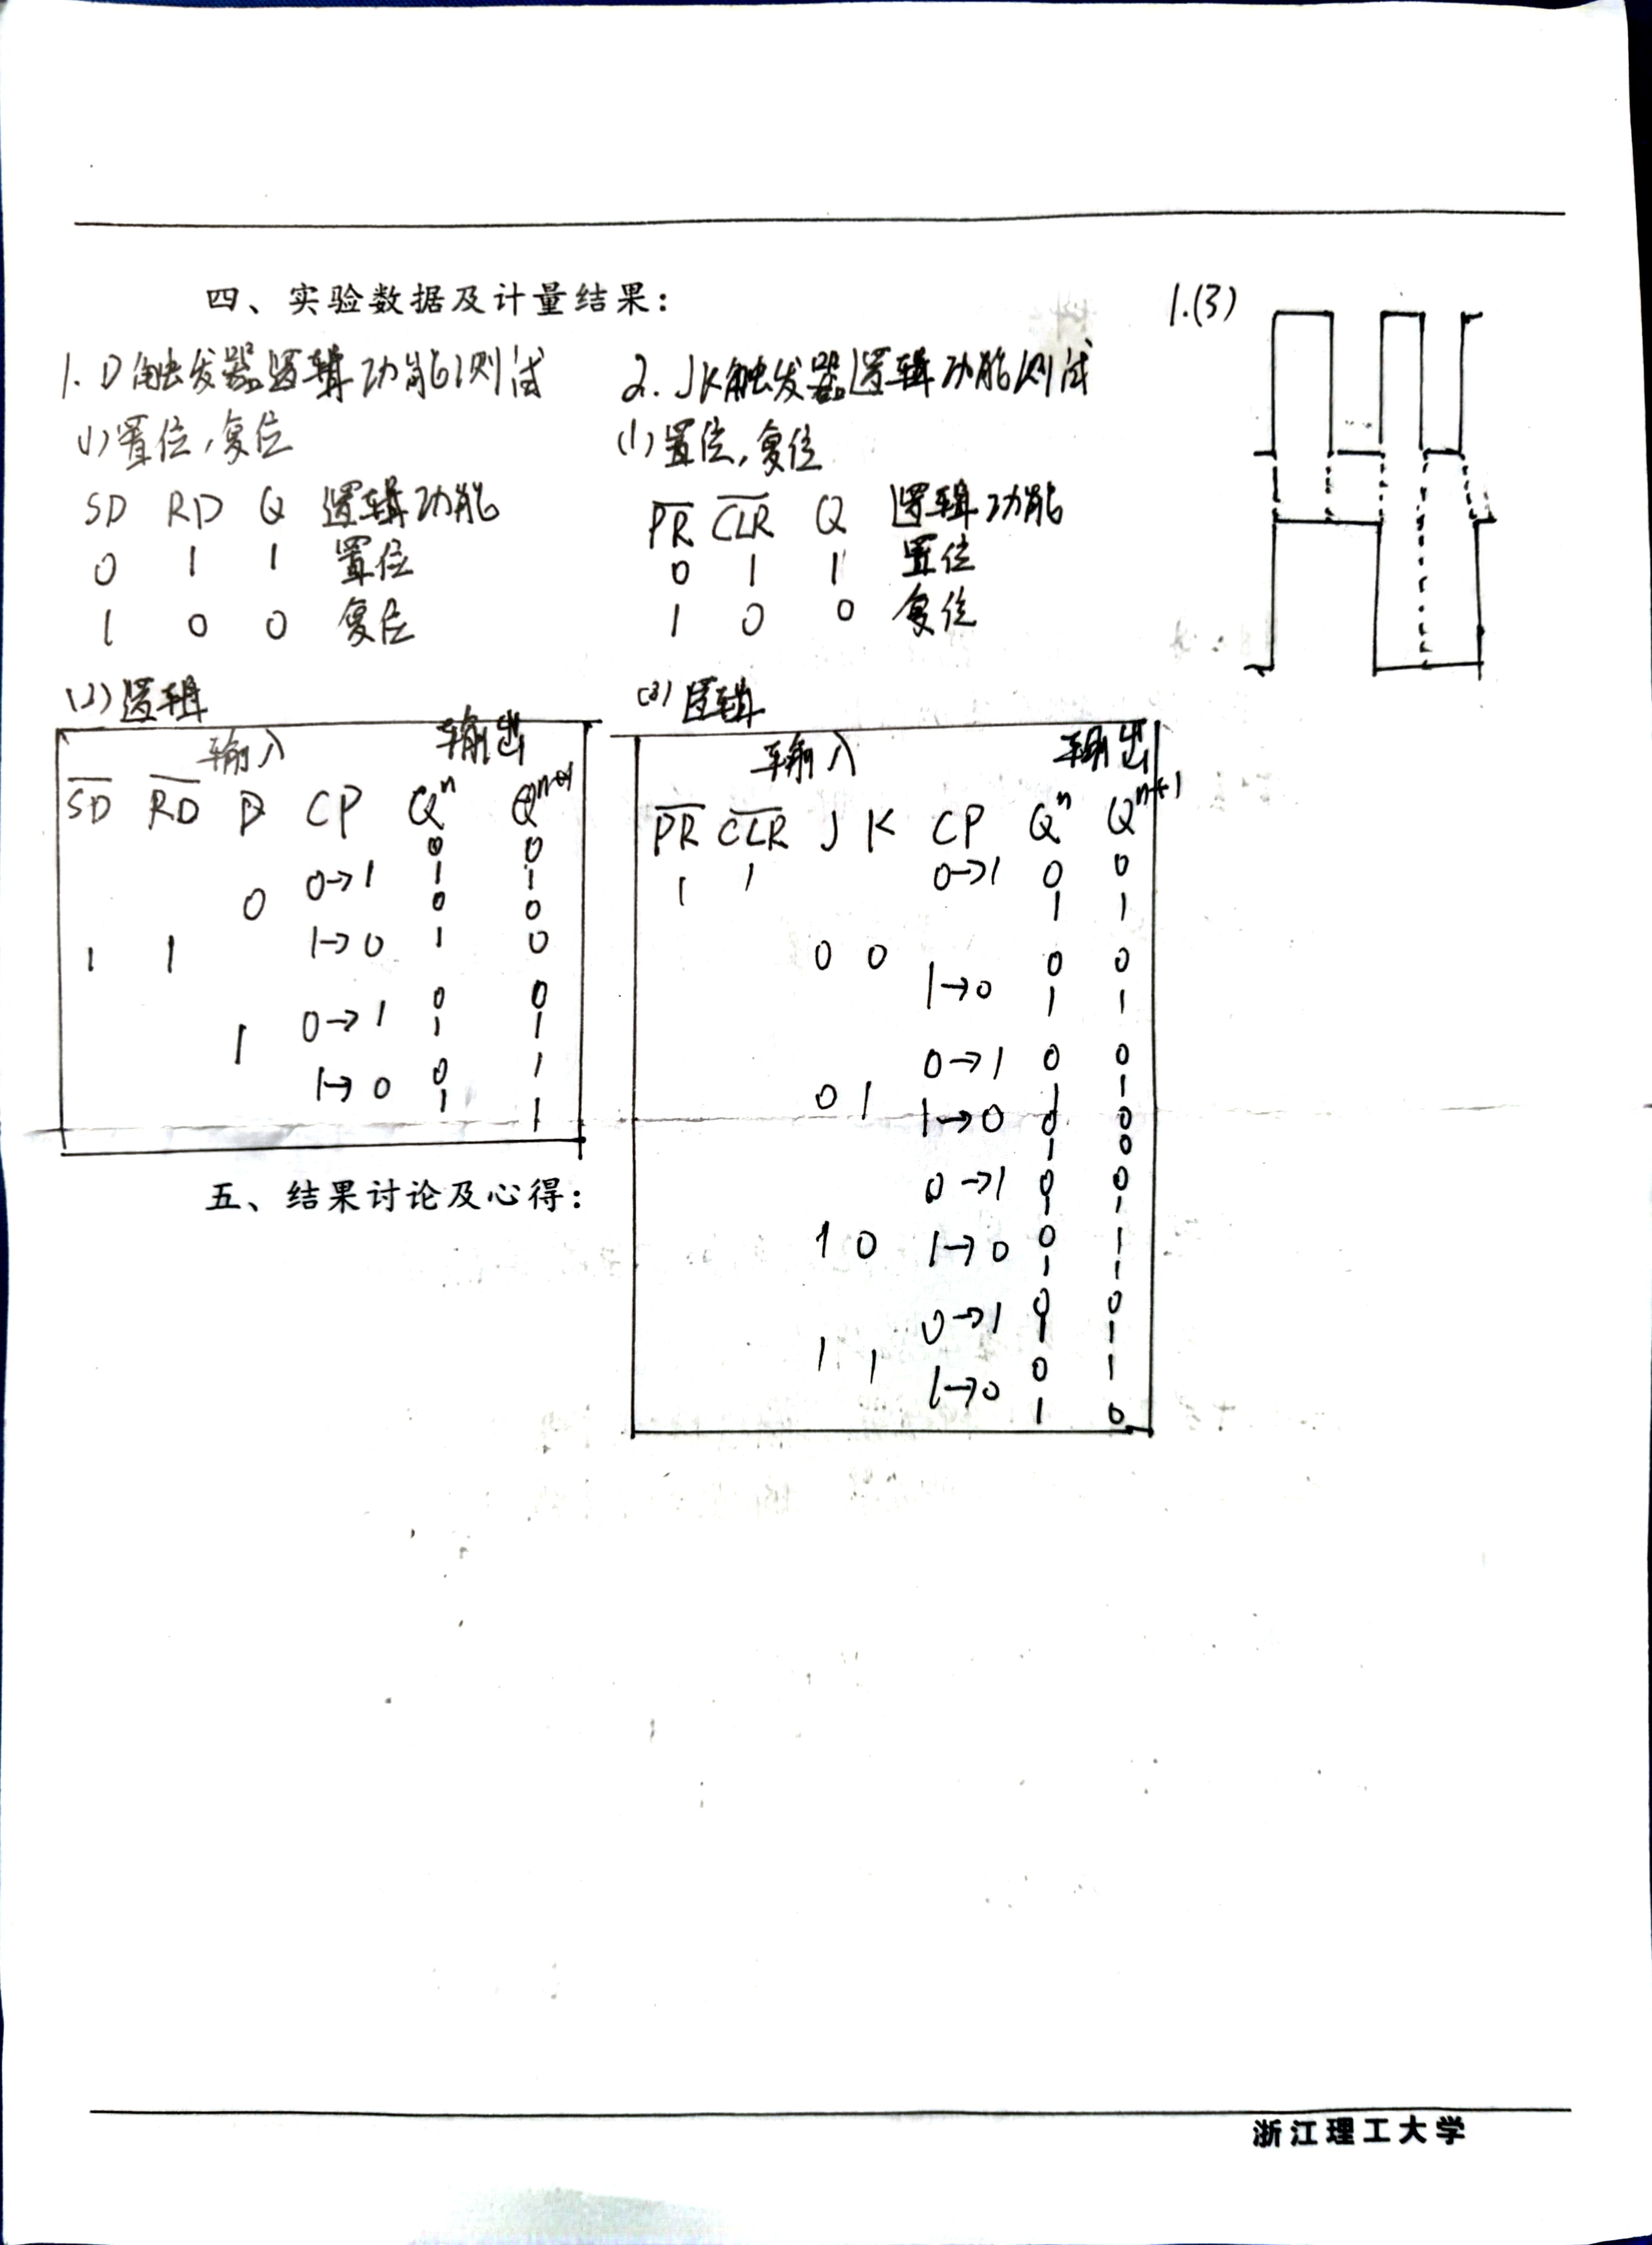 四、实验数据及计量结果：
1.(3)
1. D触发器逻辑功能测试
(1)置位,复位
SD RD Q 逻辑功能
0 1 1 置位
1 0 0 复位
(2)逻辑
输入 输出
S̅D̅ R̅D̅ D CP Qⁿ Qⁿ⁺¹
0 0
0→1 1 1
0 0 0
1 1 1→0 1 0
0 0
1 0→1 1 1
1→0 0 1
1 1
2. JK触发器逻辑功能测试
(1)置位,复位
P̅R̅ C̅L̅R̅ Q 逻辑功能
0 1 1 置位
1 0 0 复位
(2)逻辑
输入 输出
P̅R̅ C̅L̅R̅ J K CP Qⁿ Qⁿ⁺¹
1 1 0→1 0 0
1 1
0 0 0 0
1→0 1 1
0→1 0 0
0 1 1 1
1→0 0 0
1 0
0→1 0 0
1 1
1 0 1→0 0 1
1 1
0→1 0 0
1 1 1 1
1→0 0 1
1 0
五、结果讨论及心得：
浙江理工大学